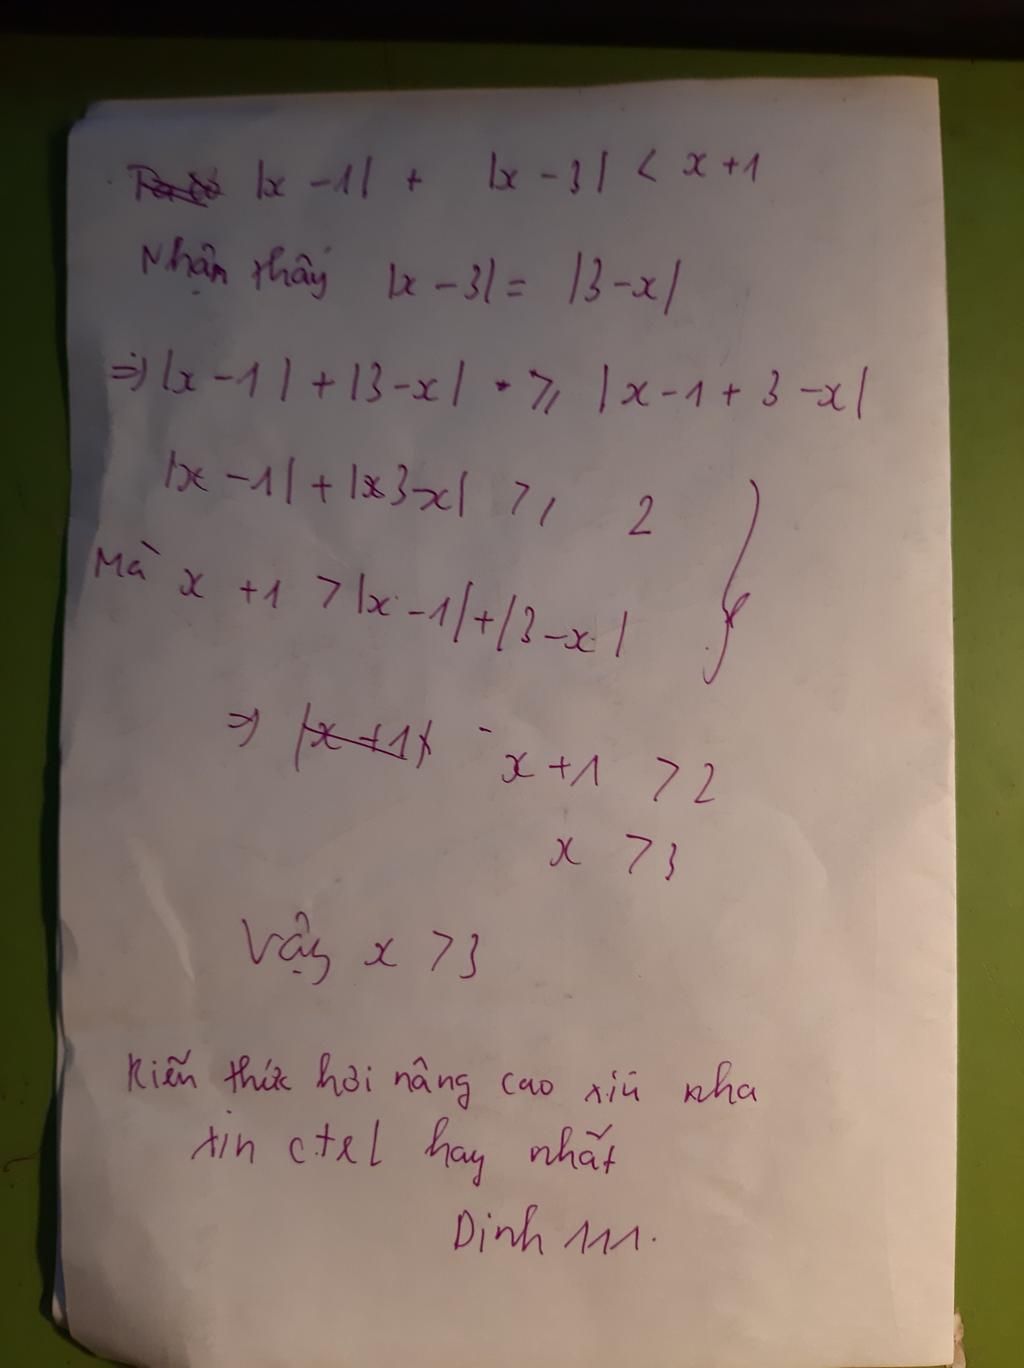 |x - 1| + |x - 3| < x + 1
Nhận thấy |x - 3| = |3 - x|
=> |x - 1| + |3 - x| ⩾ |x - 1 + 3 - x|
|x - 1| + |3 - x| ⩾ 2
Mà x + 1 > |x - 1| + |3 - x|
=> x + 1 > 2
x > 3
Vậy x > 3
Kiến thức hơi nâng cao xíu nha
xin ctrl hay nhất
Dinh 111.